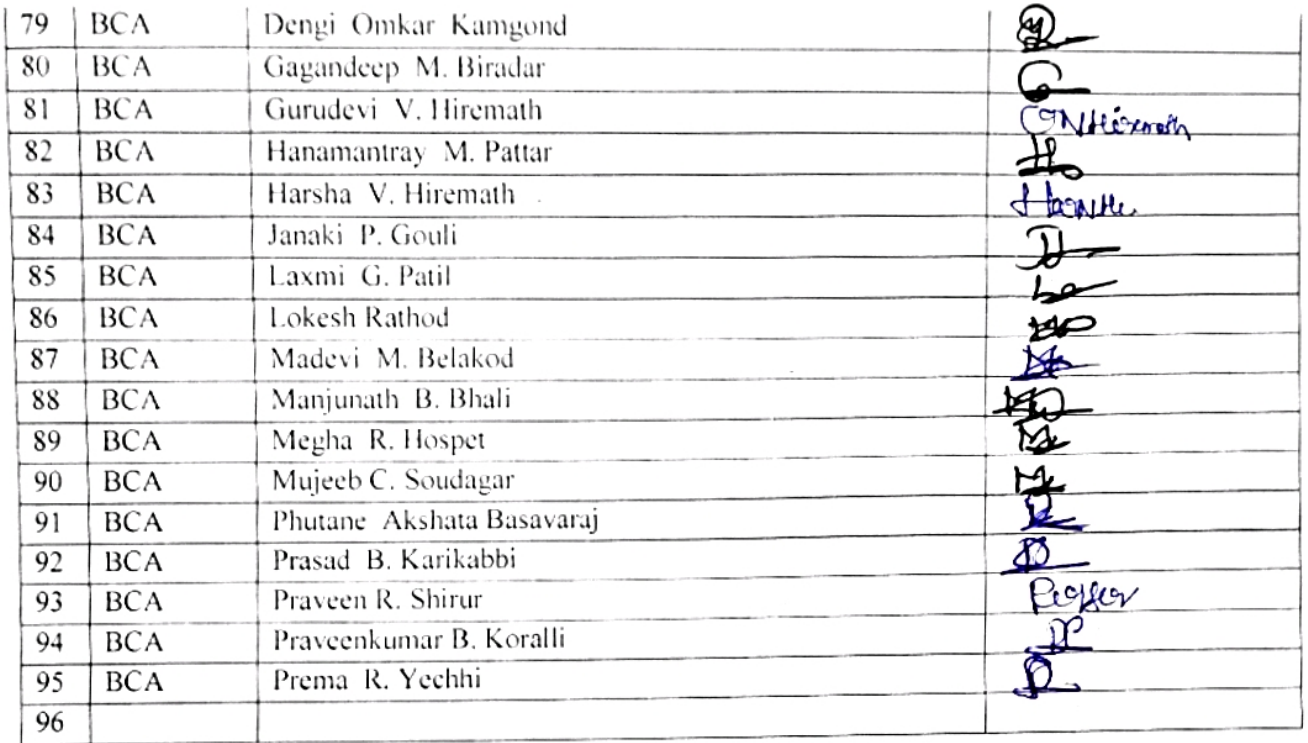 79 BCA Dengi Omkar Kamgond
80 BCA Gagandeep M. Biradar
81 BCA Gurudevi V. Hiremath GNHiremath
82 BCA Hanamantray M. Pattar
83 BCA Harsha V. Hiremath
84 BCA Janaki P. Gouli
85 BCA Laxmi G. Patil
86 BCA Lokesh Rathod
87 BCA Madevi M. Belakod
88 BCA Manjunath B. Bhali
89 BCA Megha R. Hospet
90 BCA Mujeeb C. Soudagar
91 BCA Phutane Akshata Basavaraj
92 BCA Prasad B. Karikabbi
93 BCA Praveen R. Shirur
94 BCA Praveenkumar B. Koralli
95 BCA Prema R. Yechhi
96